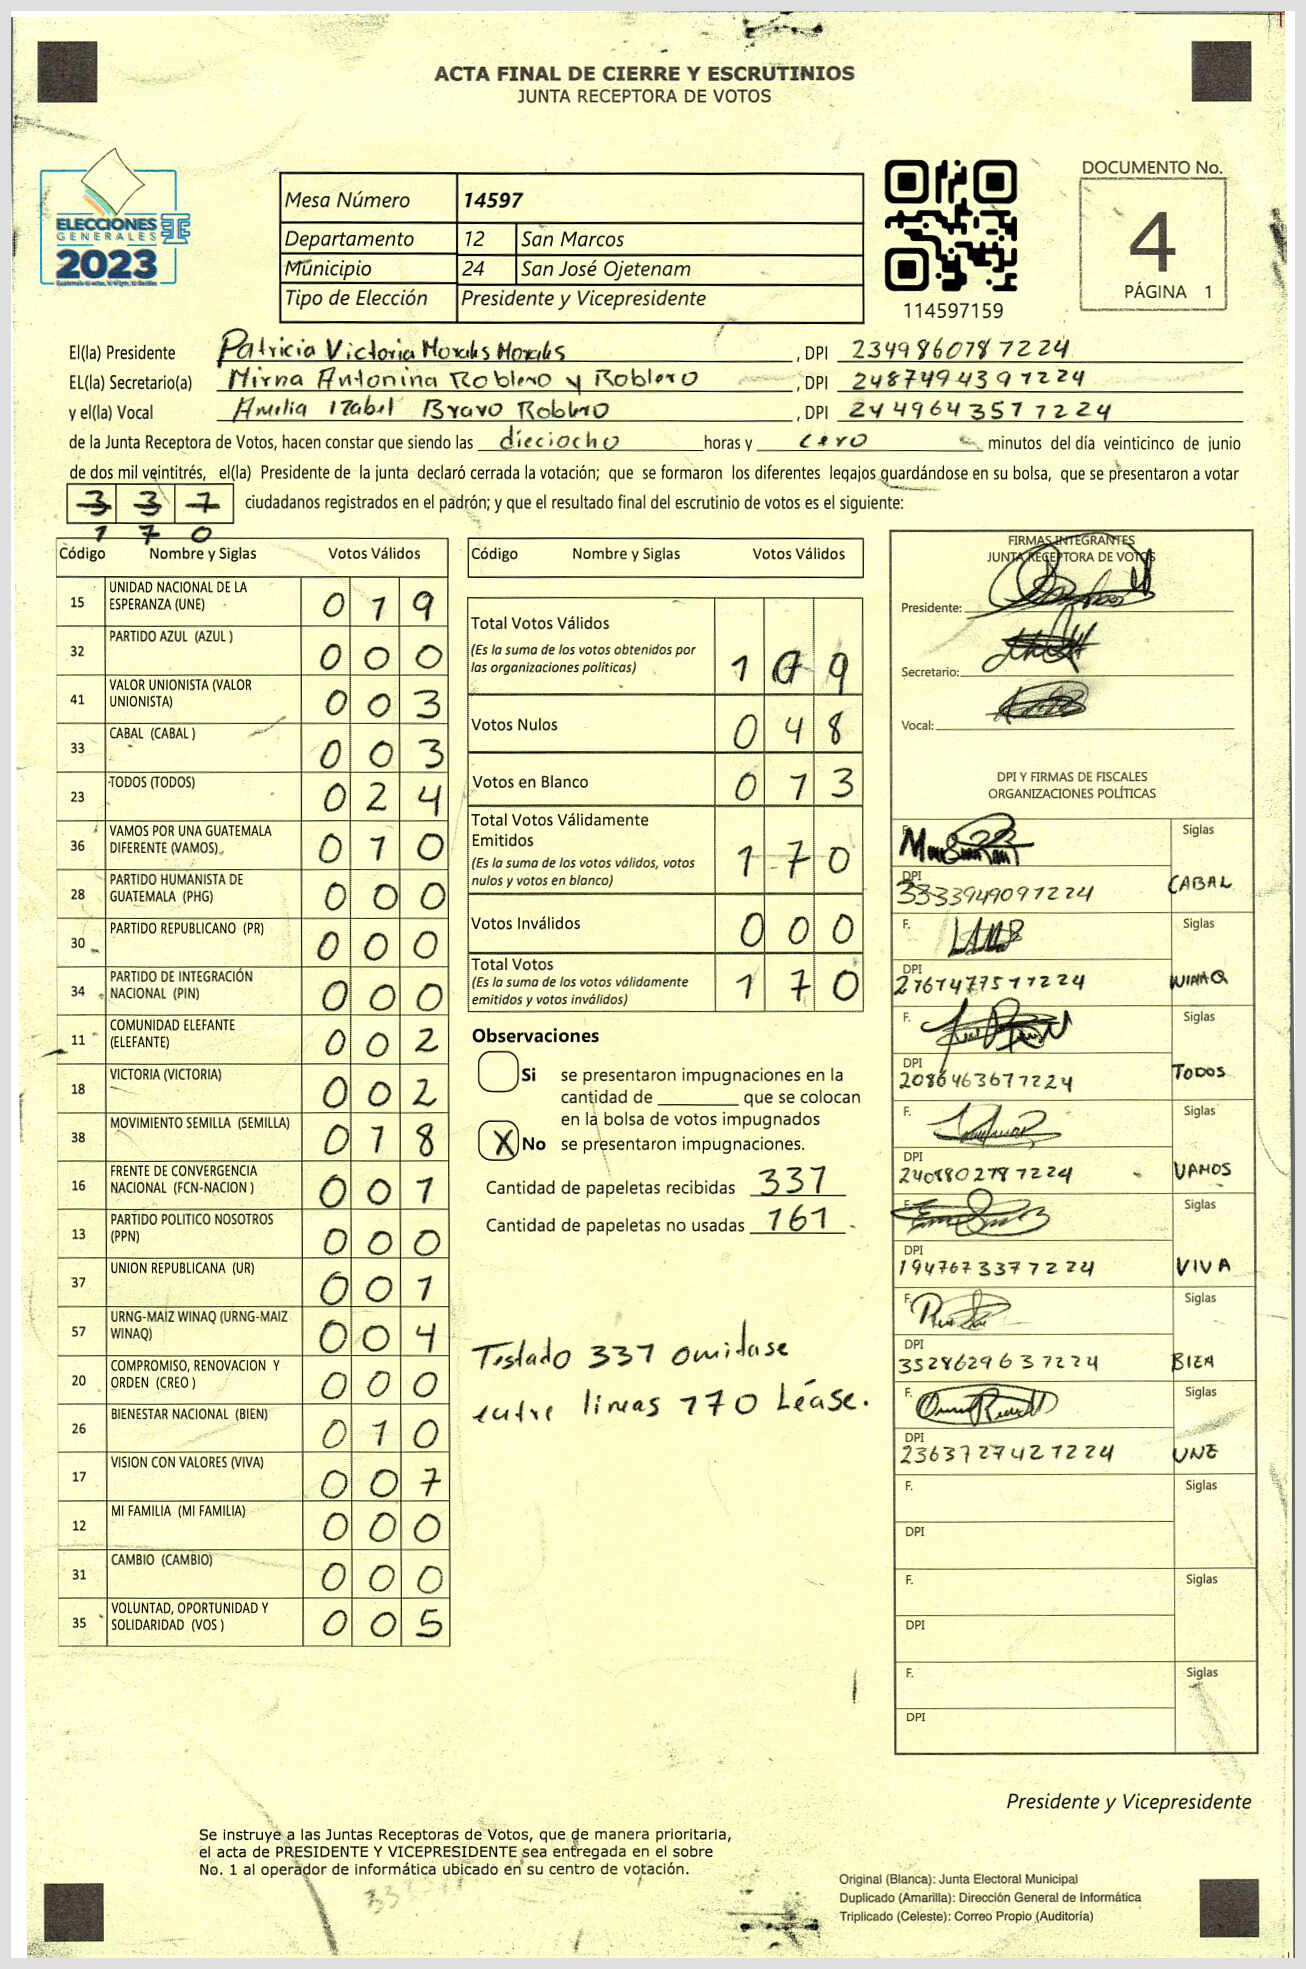 ACTA FINAL DE CIERRE Y ESCRUTINIOS
JUNTA RECEPTORA DE VOTOS
ELECCIONES
GENERALES
2023
Mesa Número 14597
Departamento 12 San Marcos
Municipio 24 San José Ojetenam
Tipo de Elección Presidente y Vicepresidente
114597159
DOCUMENTO No.
4
PÁGINA 1
El(la) Presidente Patricia Victoria Morales Morales, DPI 2349860787224
EL(la) Secretario(a) Mirna Antonina Roblero y Roblero, DPI 2487494397224
y el(la) Vocal Amilia Izabel Bravo Roblero, DPI 2449643577224
de la Junta Receptora de Votos, hacen constar que siendo las dieciocho horas y cero minutos del día veinticinco de junio
de dos mil veintitrés, el(la) Presidente de la junta declaró cerrada la votación; que se formaron los diferentes legajos guardándose en su bolsa, que se presentaron a votar
337 ciudadanos registrados en el padrón; y que el resultado final del escrutinio de votos es el siguiente:
170
Código Nombre y Siglas Votos Válidos
15 UNIDAD NACIONAL DE LA ESPERANZA (UNE) 019
32 PARTIDO AZUL (AZUL ) 000
41 VALOR UNIONISTA (VALOR UNIONISTA) 003
33 CABAL (CABAL ) 003
23 TODOS (TODOS) 024
36 VAMOS POR UNA GUATEMALA DIFERENTE (VAMOS) 010
28 PARTIDO HUMANISTA DE GUATEMALA (PHG) 000
30 PARTIDO REPUBLICANO (PR) 000
34 PARTIDO DE INTEGRACIÓN NACIONAL (PIN) 000
11 COMUNIDAD ELEFANTE (ELEFANTE) 002
18 VICTORIA (VICTORIA) 002
38 MOVIMIENTO SEMILLA (SEMILLA) 018
16 FRENTE DE CONVERGENCIA NACIONAL (FCN-NACION ) 001
13 PARTIDO POLITICO NOSOTROS (PPN) 000
37 UNION REPUBLICANA (UR) 001
57 URNG-MAIZ WINAQ (URNG-MAIZ WINAQ) 004
20 COMPROMISO, RENOVACION Y ORDEN (CREO ) 000
26 BIENESTAR NACIONAL (BIEN) 010
17 VISION CON VALORES (VIVA) 007
12 MI FAMILIA (MI FAMILIA) 000
31 CAMBIO (CAMBIO) 000
35 VOLUNTAD, OPORTUNIDAD Y SOLIDARIDAD (VOS ) 005
Código Nombre y Siglas Votos Válidos
Total Votos Válidos
(Es la suma de los votos obtenidos por
las organizaciones políticas) 109
Votos Nulos 048
Votos en Blanco 013
Total Votos Válidamente
Emitidos
(Es la suma de los votos válidos, votos
nulos y votos en blanco) 170
Votos Inválidos 000
Total Votos
(Es la suma de los votos válidamente
emitidos y votos inválidos) 170
Observaciones
Si se presentaron impugnaciones en la
cantidad de que se colocan
en la bolsa de votos impugnados
X No se presentaron impugnaciones.
Cantidad de papeletas recibidas 337
Cantidad de papeletas no usadas 167.
Testado 337 omitase
entre lineas 170 Léase.
FIRMAS INTEGRANTES
JUNTA RECEPTORA DE VOTOS
Presidente:
Secretario:
Vocal:
DPI Y FIRMAS DE FISCALES
ORGANIZACIONES POLÍTICAS
F. Siglas
DPI 3333949097224 CABAL
F. Siglas
DPI 2767477577224 WINAQ
F. Siglas
DPI 2086463677224 TODOS
F. Siglas
DPI 2408802787224 VAMOS
F. Siglas
DPI 1947673377224 VIVA
F. Siglas
DPI 3528629637224 BIEN
F. Siglas
DPI 2363727427224 UNE
F. Siglas
DPI
F. Siglas
DPI
F. Siglas
DPI
Presidente y Vicepresidente
Se instruye a las Juntas Receptoras de Votos, que de manera prioritaria,
el acta de PRESIDENTE Y VICEPRESIDENTE sea entregada en el sobre
No. 1 al operador de informática ubicado en su centro de votación.
Original (Blanca): Junta Electoral Municipal
Duplicado (Amarilla): Dirección General de Informática
Triplicado (Celeste): Correo Propio (Auditoría)